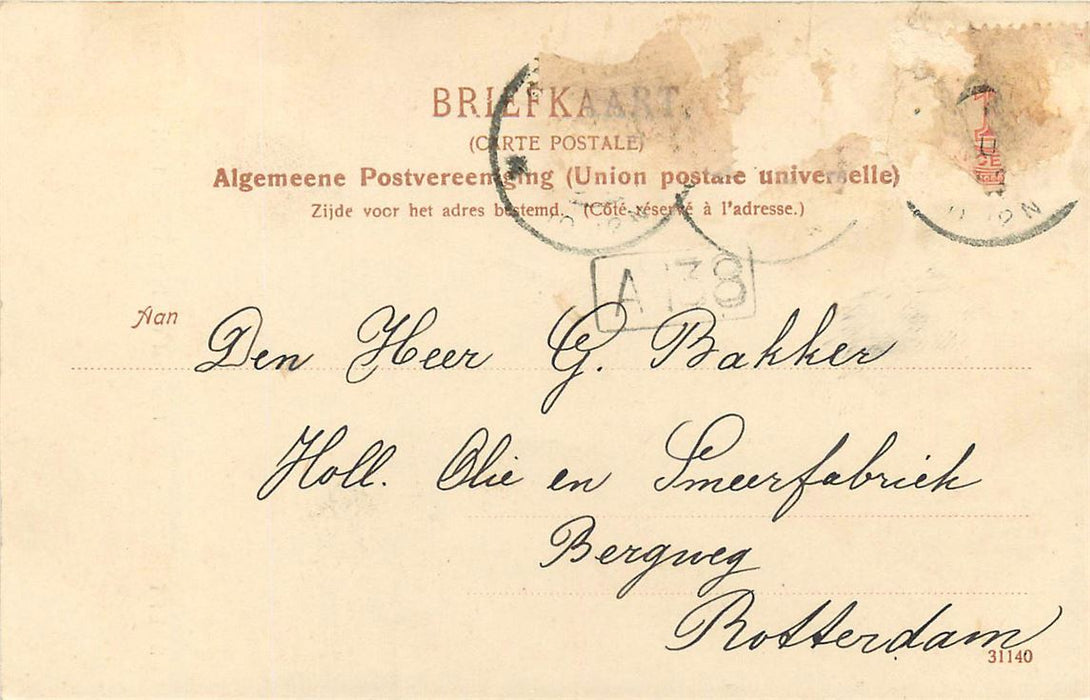 BRIEFKAART
(CARTE POSTALE)
Algemeene Postvereeniging (Union postale universelle)
Zijde voor het adres bestemd. (Côté réservé à l'adresse.)
A 138
Aan
Den Heer G. Bakker
Holl. Olie en Smeerfabriek
Bergweg
Rotterdam
31140